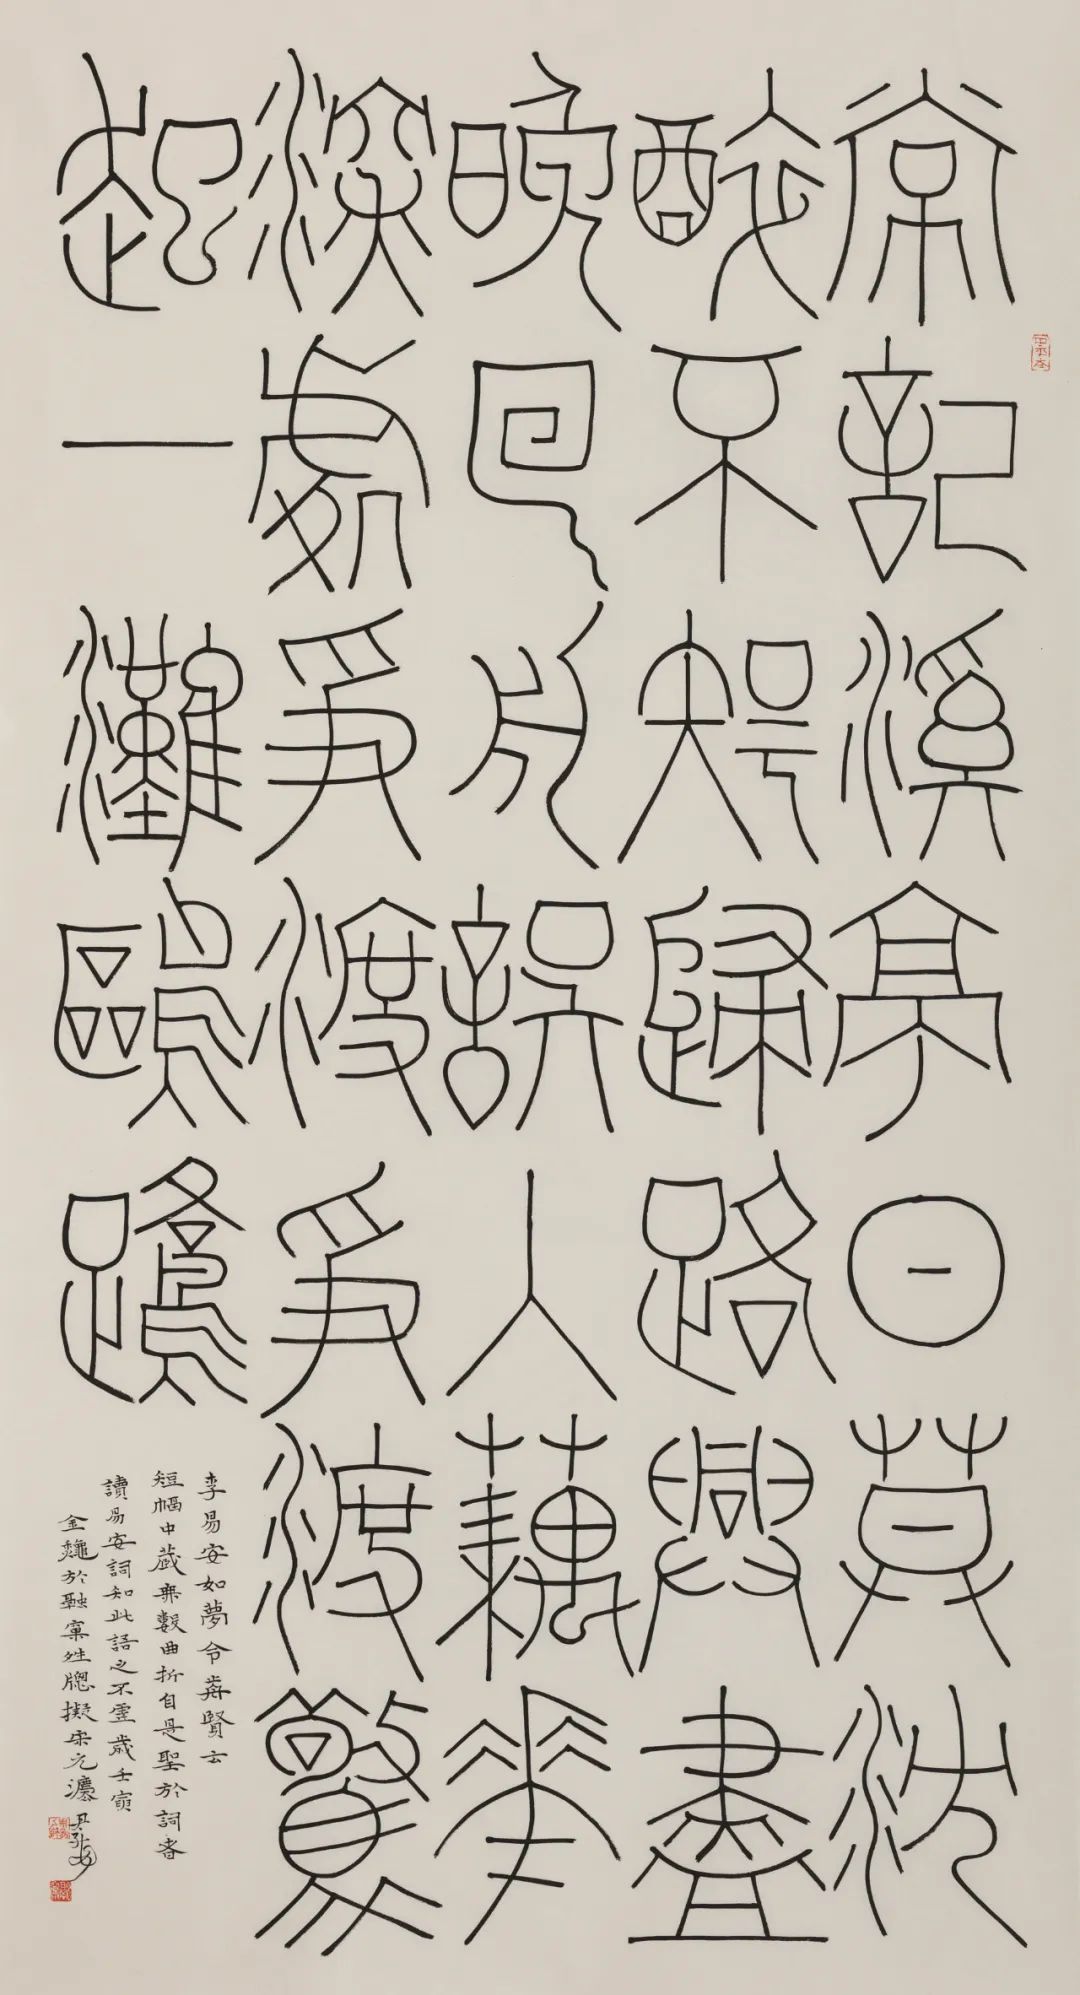 常記溪亭日莫沈
醉不知歸路興盡
晚回舟誤入藕華
深處爭渡爭渡驚
起一灘鷗鷺
李易安如夢令賢云
短幅中藏無數曲折自是聖於詞者
讀易安詞知此語之不虛歲壬寅
金龝於融牕擬宋元灋